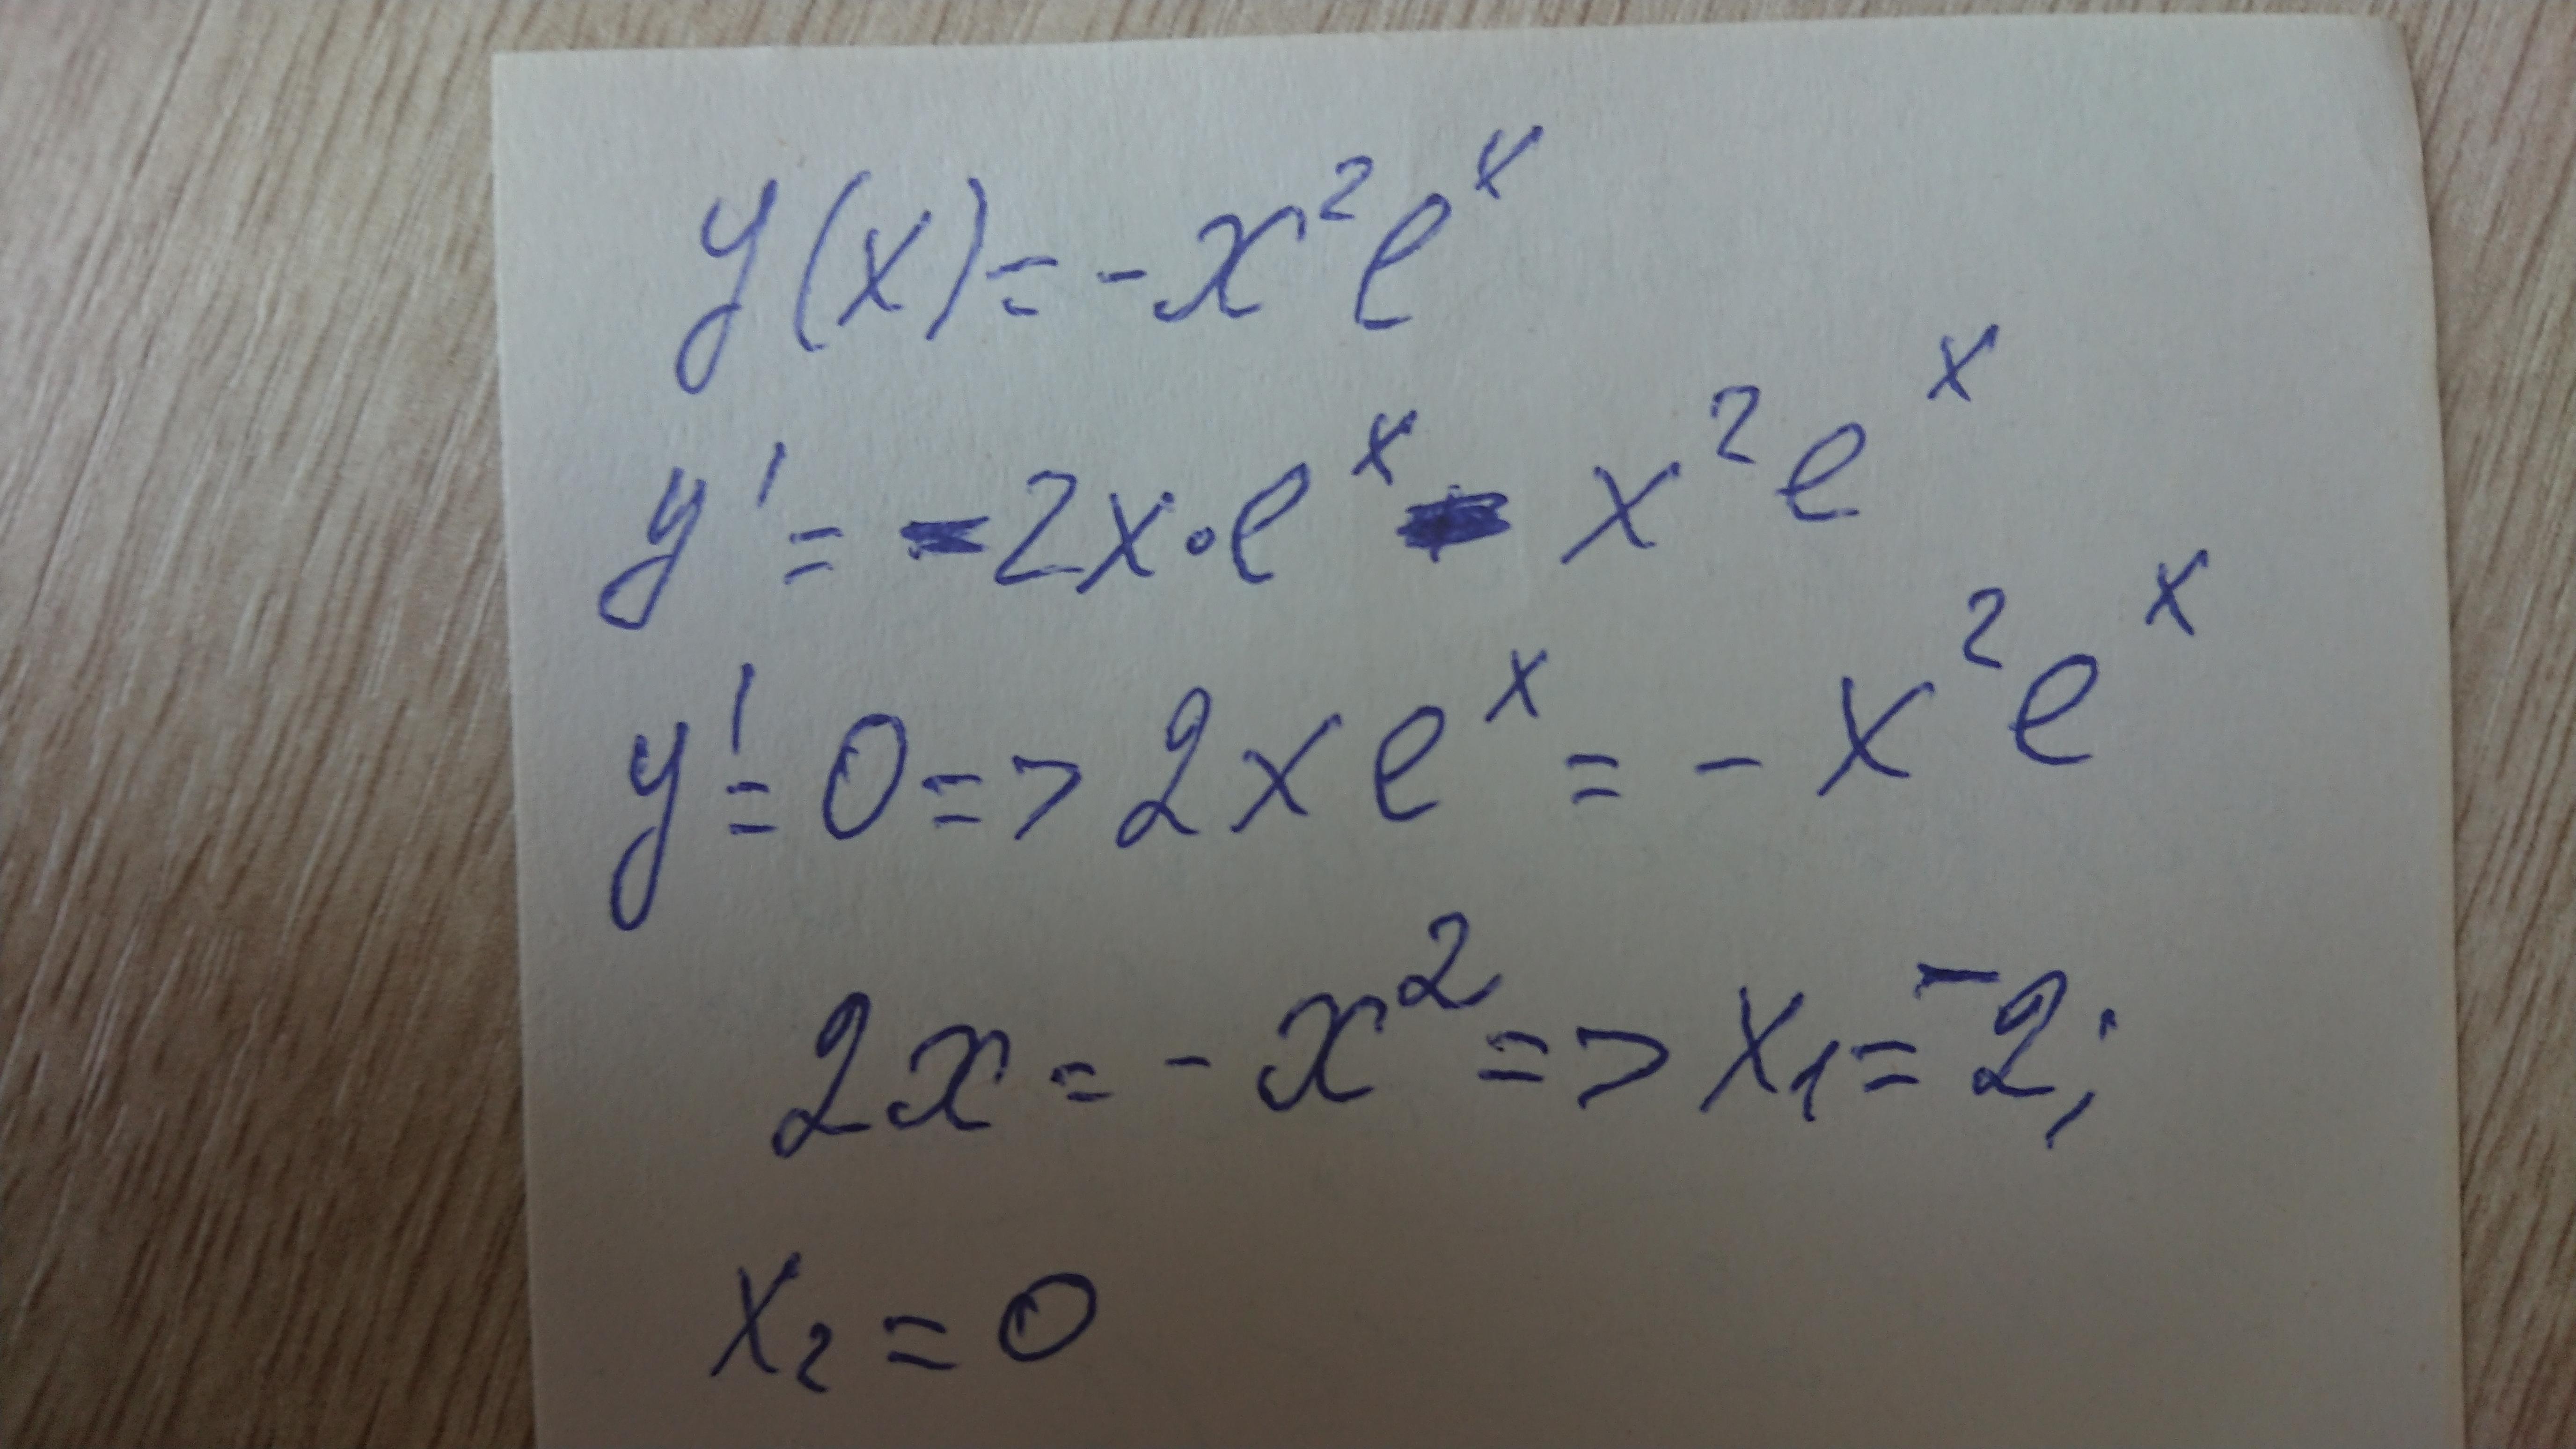 y(x)=-x²eˣ
y'=-2x·eˣ-x²eˣ
y'=0=>2xeˣ=-x²eˣ
2x=-x²=>x₁=-2;
x₂=0